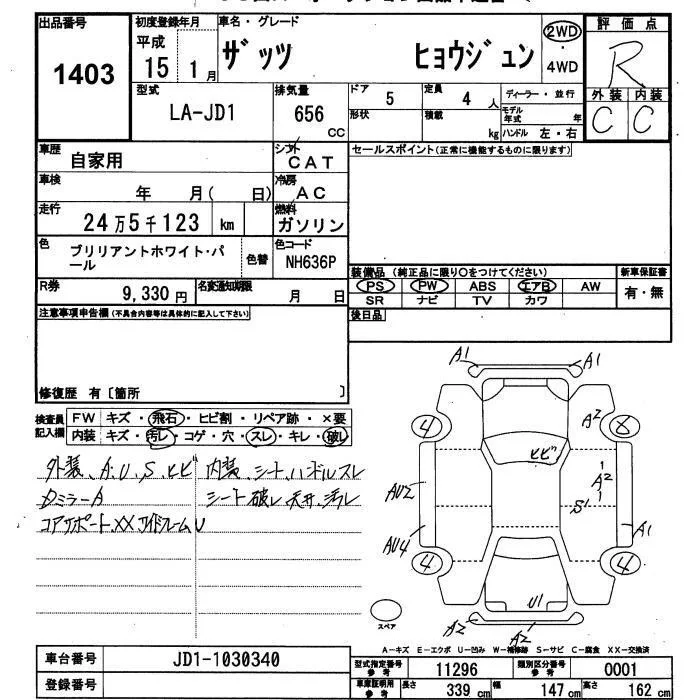 出品番号
1403
初度登録年月
平成
15 1 月
車名・グレード
ザッツ ヒョウジュン
2WD
・
4WD
評価点
R
外装 内装
C C
型式
LA-JD1
排気量
656
CC
ドア
5
定員
4 人
ディーラー・並行
形状
積載
kg
モデル年式
年
ハンドル 左・右
車歴
自家用
シフト
CAT
セールスポイント(正常に機能するものに限ります)
車検
年 月( 日)
冷房
AC
走行
24万5千123 km
燃料
ガソリン
色
ブリリアントホワイト・パ
ール
色替
色コード
NH636P
装備品 (純正品に限り○をつけてください)
新車保証書
PS PW ABS エアB AW
有・無
SR ナビ TV カワ
R券
9,330 円
名変通知期限
月 日
後日品
注意事項申告欄 (不具合内容等は具体的に記入して下さい)
修復歴 有〔箇所 〕
検査員
記入欄
FW キズ・飛石・ヒビ割・リペア跡・×要
内装 キズ・汚レ・コゲ・穴・スレ・キレ・破レ
外装、A、U、S、ヒビ
内装、シート、ハンドルスレ
ミラーA
シート破レ 天井、汚レ
コアサポート、XX サイドフレーム、U
A1 A1
4 A2 8
ヒビ
AU2 A2
S1
AU4 A1
4 4
U1
A2 A2
スペア
A-キズ E-エクボ U-凹み W-補修跡 S-サビ C-腐食 XX-交換済
車台番号
JD1-1030340
登録番号
型式指定番号
参考
11296
類別区分番号
参考
0001
車庫証明用
参考
長さ
339 cm
幅
147 cm
高さ
162 cm